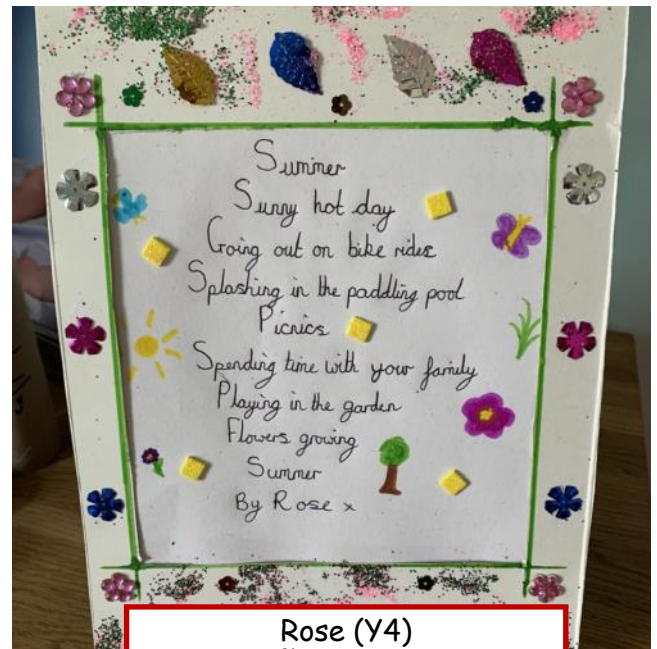 Summer
Sunny hot day
Going out on bike rides
Splashing in the paddling pool
Picnics
Spending time with your family
Playing in the garden
Flowers growing
Summer
By Rose x
Rose (Y4)